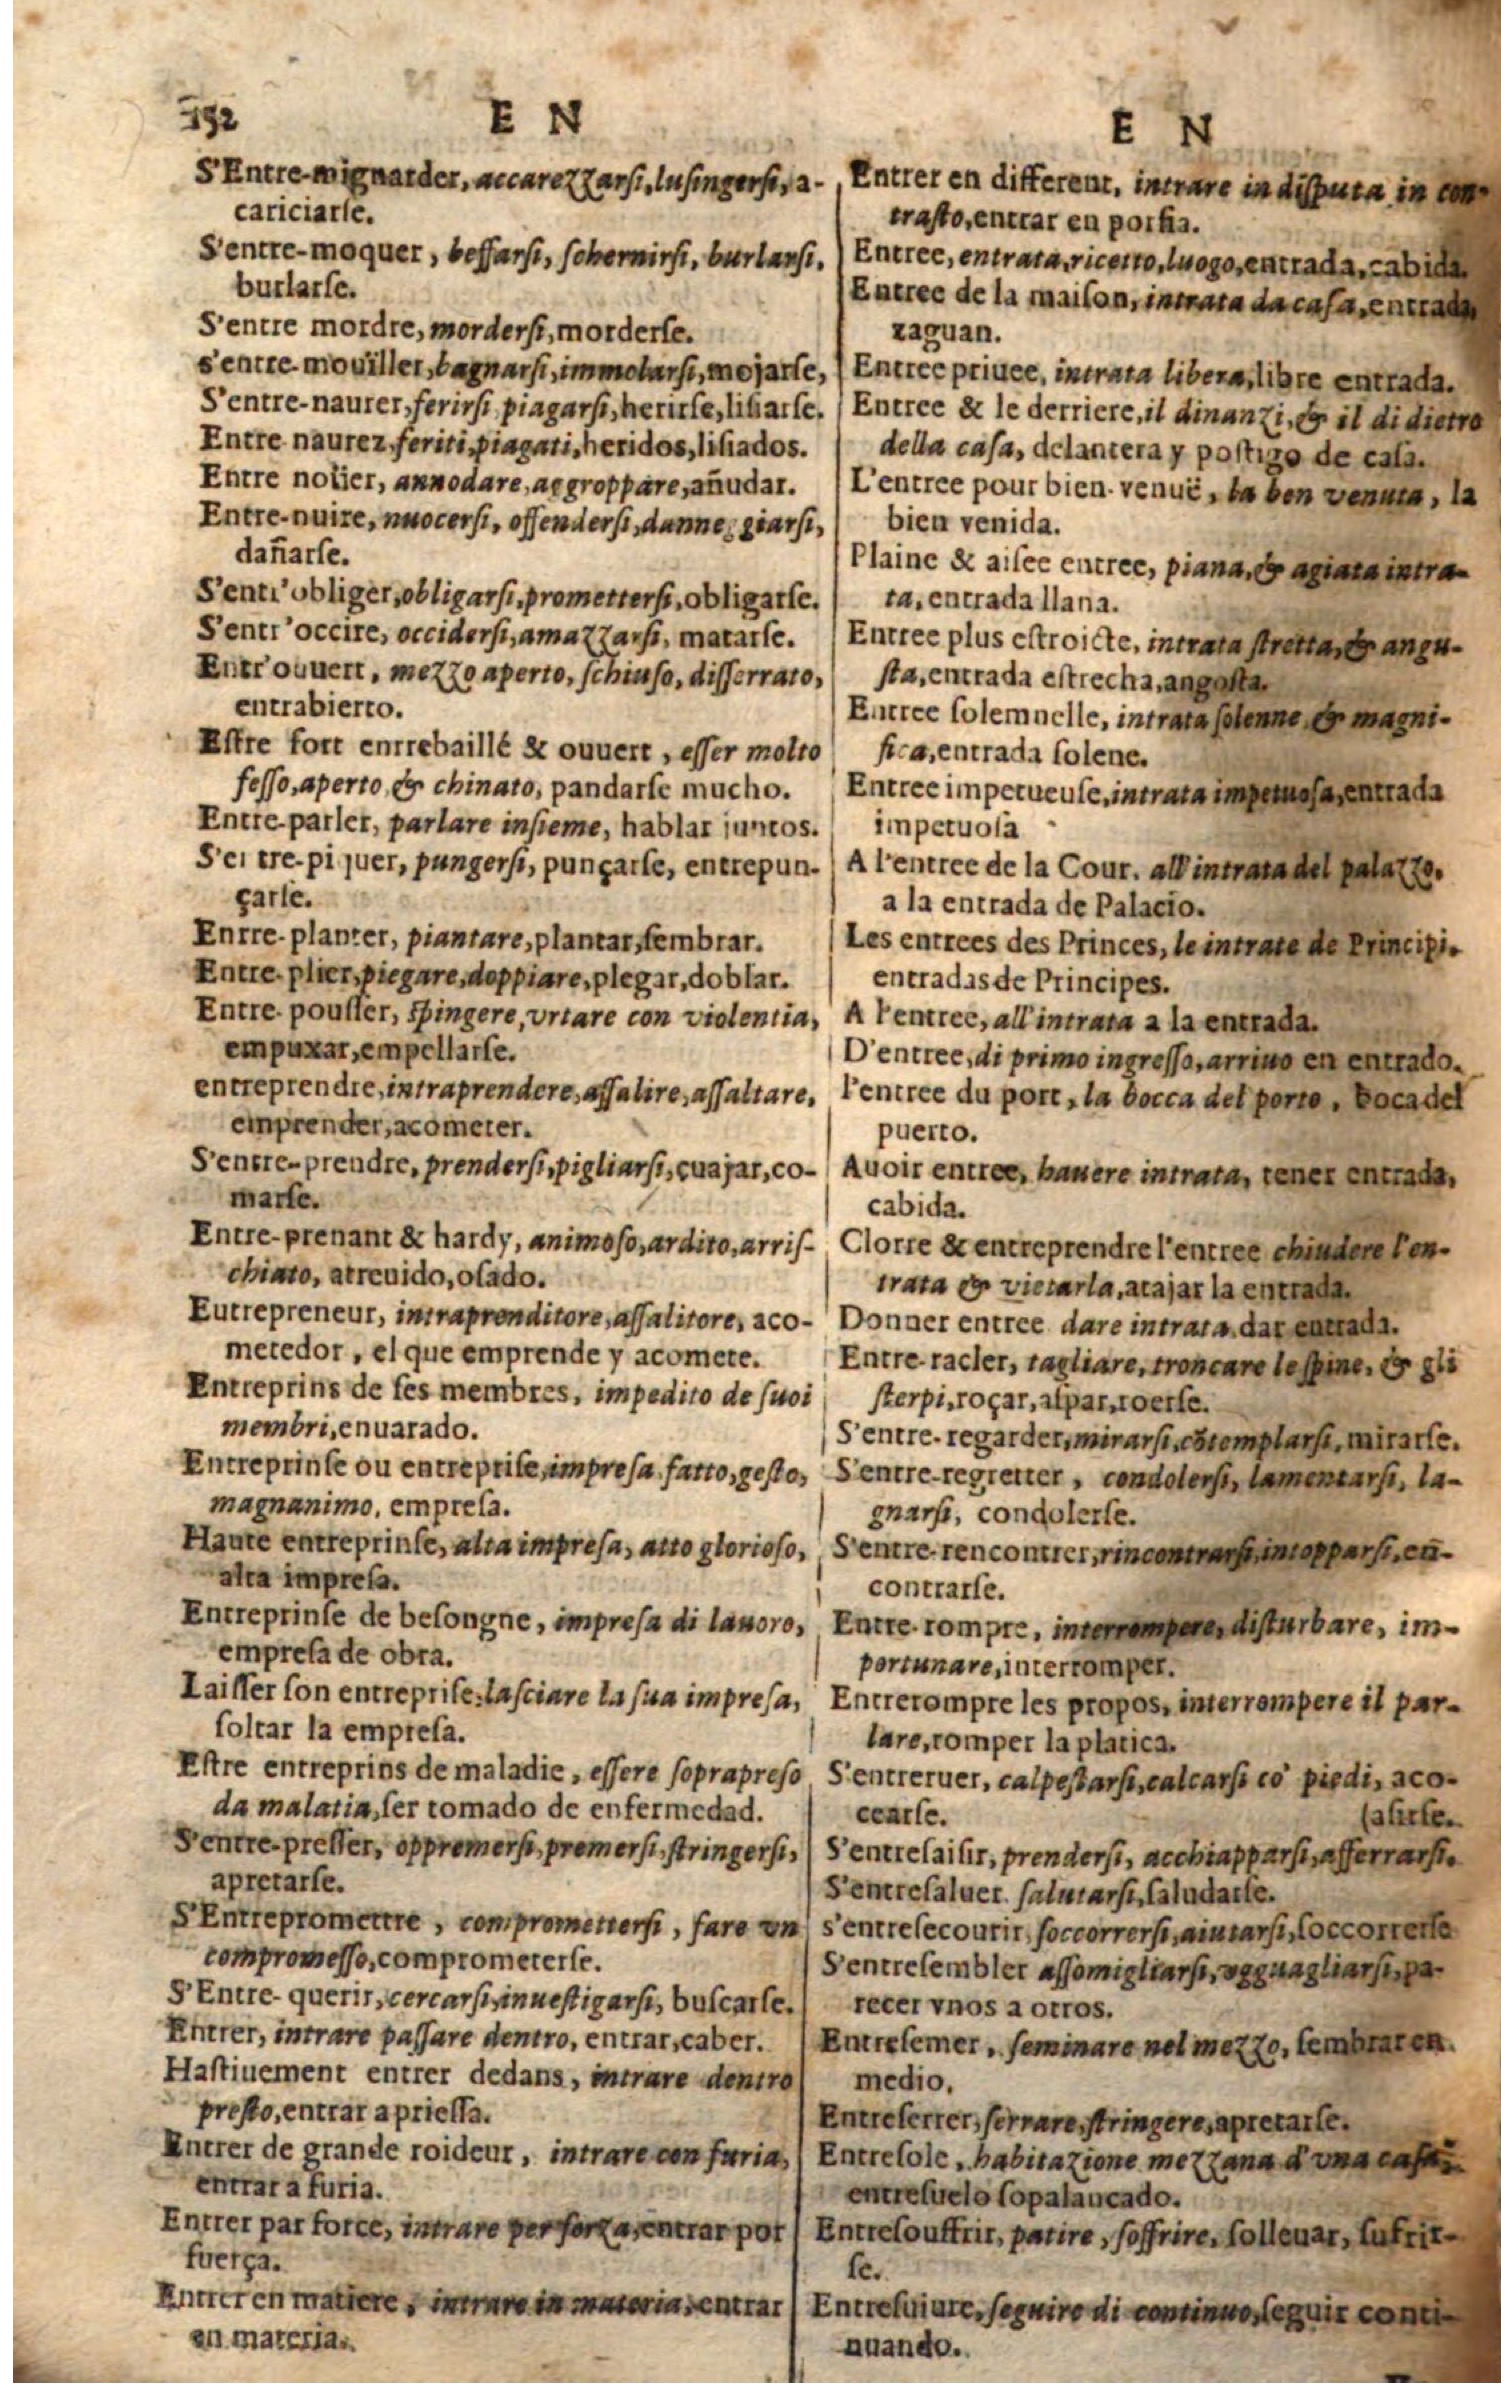 152
E N
S'Entre-mignarder, accarezzarsi, lusingersi, a-
cariciarse.
S'entre-moquer, beffarsi, schernirsi, burlarsi,
burlarse.
S'entre mordre, mordersi, morderse.
s'entre-mouïller, bagnarsi, immolarsi, mojarse,
S'entre-naurer, ferirsi piagarsi, herirse, lisiarse.
Entre naurez, feriti, piagati, heridos, lisiados.
Entre noüer, annodare, aggroppare, añudar.
Entre-nuire, nuocersi, offendersi, danneggiarsi,
dañarse.
S'entr'obliger, obligarsi, promettersi, obligarse.
S'entr'occire, occidersi, amazzarsi, matarse.
Entr'ouuert, mezzo aperto, schiuso, disserrato,
entrabierto.
Estre fort enrrebaillé & ouuert, esser molto
fesso, aperto, & chinato, pandarse mucho.
Entre-parler, parlare insieme, hablar juntos.
S'entre-piquer, pungersi, punçarse, entrepun-
çarse.
Enrre-planter, piantare, plantar, sembrar.
Entre-plier, piegare, doppiare, plegar, doblar.
Entre-pousser, spingere, vrtare con violentia,
empuxar, empellarse.
entreprendre, intraprendere, assalire, assaltare,
emprender, acometer.
S'entre-prendre, prendersi, pigliarsi, çuajar, co-
marse.
Entre-prenant & hardy, animoso, ardito, arris-
chiato, atreuido, osado.
Eutrepreneur, intraprenditore, assalitore, aco-
metedor, el que emprende y acomete.
Entreprins de ses membres, impedito de suoi
membri, enuarado.
Entreprinse ou entreprise, impresa fatto, gesto,
magnanimo, empresa.
Haute entreprinse, alta impresa, atto glorioso,
alta impresa.
Entreprinse de besongne, impresa di lauoro,
empresa de obra.
Laisser son entreprise, lasciare la sua impresa,
soltar la empresa.
Estre entreprins de maladie, essere soprapreso
da malatia, ser tomado de enfermedad.
S'entre-presser, oppremersi, premersi, stringersi,
apretarse.
S'Entrepromettre, compromettersi, fare vn
compromesso, comprometerse.
S'Entre-querir, cercarsi, inuestigarsi, buscarse.
Entrer, intrare passare dentro, entrar, caber.
Hastiuement entrer dedans, intrare dentro
presto, entrar a priessa.
Entrer de grande roideur, intrare con furia,
entrar a furia.
Entrer par force, intrare per forza, entrar por
fuerça.
Entrer en matiere, intrare in materia, entrar
en materia.
E N
Entrer en different, intrare in disputa in con-
trasto, entrar en porfia.
Entree, entrata, ricetto, luogo, entrada, cabida.
Entree de la maison, intrata da casa, entrada,
zaguan.
Entree priuee, intrata libera, libre entrada.
Entree & le derriere, il dinanzi, & il di dietro
della casa, delantera y postigo de casa.
L'entree pour bien-venuë, la ben venuta, la
bien venida.
Plaine & aisee entree, piana, & agiata intra-
ta, entrada llana.
Entree plus estroicte, intrata stretta, & angu-
sta, entrada estrecha, angosta.
Entree solemnelle, intrata solenne & magni-
fica, entrada solene.
Entree impetueuse, intrata impetuosa, entrada
impetuosa
A l'entree de la Cour, all'intrata del palazzo,
a la entrada de Palacio.
Les entrees des Princes, le intrate de Principi.
entradas de Principes.
A l'entree, all'intrata a la entrada.
D'entree, di primo ingresso, arriuo en entrado.
l'entree du port, la bocca del porto, boca del
puerto.
Auoir entree, hauere intrata, tener entrada,
cabida.
Clorre & entreprendre l'entree chiudere l'en-
trata & vietarla, atajar la entrada.
Donner entree dare intrata, dar entrada.
Entre-racler, tagliare, troncare le spine, & gli
sterpi, roçar, aspar, roerse.
S'entre-regarder, mirarsi, cõtemplarsi, mirarse.
S'entre-regretter, condolersi, lamentarsi, la-
gnarsi, condolerse.
S'entre-rencontrer, rincontrarsi, intopparsi, en-
contrarse.
Entre-rompre, interrompere, disturbare, im-
portunare, interromper.
Entrerompre les propos, interrompere il par-
lare, romper la platica.
S'entreruer, calpestarsi, calcarsi co' piedi, aco-
cearse. (asirse.
S'entresaisir, prendersi, acchiapparsi, afferrarsi.
S'entresaluer salutarsi, saludarse.
s'entresecourir, soccorrersi, aiutarsi, soccorrerse
S'entresembler assomigliarsi, vgguagliarsi, pa-
recer vnos a otros.
Entresemer, seminare nel mezzo, sembrar en
medio.
Entreserrer, serrare, stringere, apretarse.
Entresole, habitazione mezzana d'vna casa,
entresuelo sopalancado.
Entresouffrir, patire, soffrire, solleuar, sufrir-
se.
Entresuiure, seguire di continuo, seguir conti-
nuando.